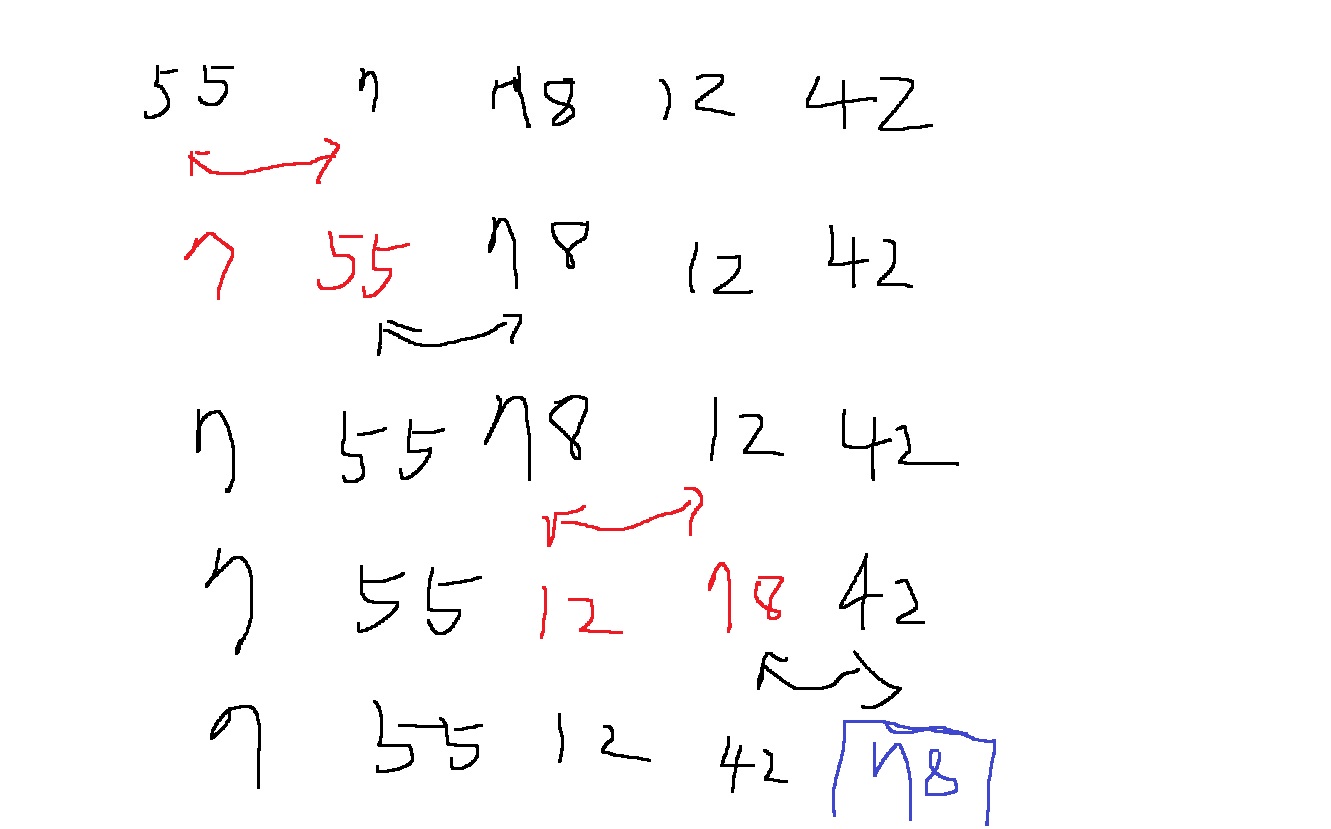 55 7 78 12 42
7 55 78 12 42
7 55 78 12 42
7 55 12 78 42
7 55 12 42 78